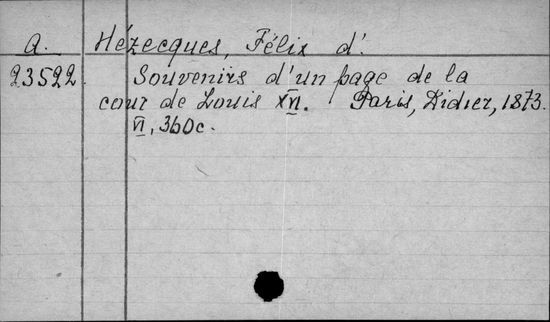 A. Hézecques, Félix d'.
23522. Souvenirs d'un page de la
cour de Louis XVI. Paris, Didier, 1873.
VI, 360 c.